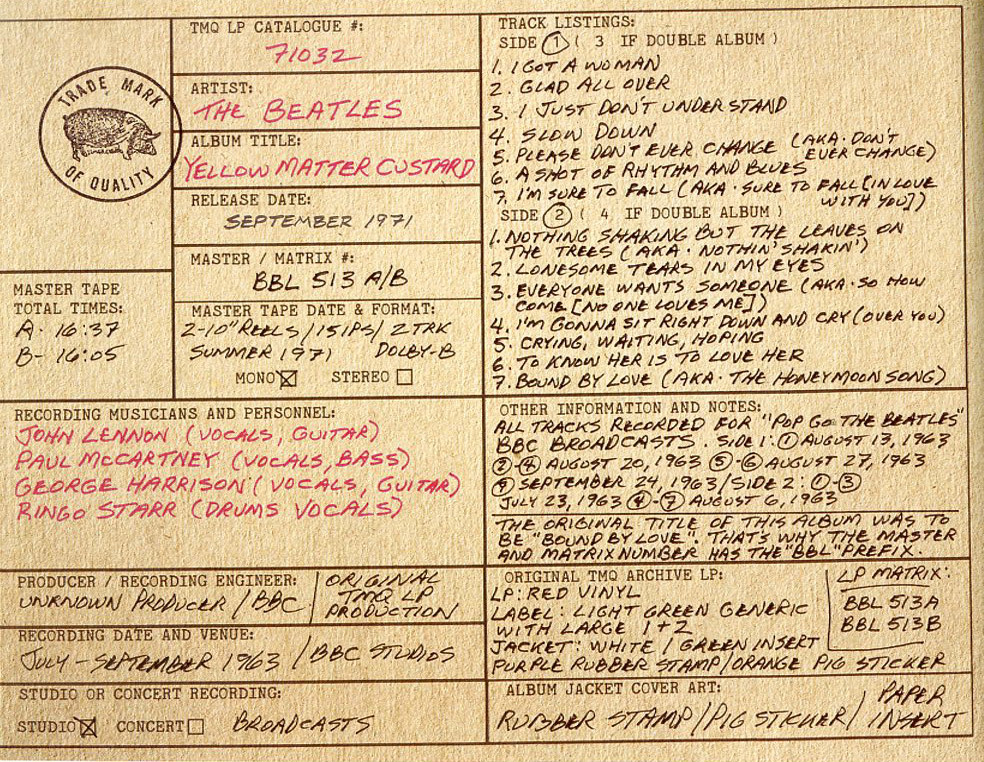 TRADE MARK
OF QUALITY
TMQ LP CATALOGUE #:
71032
ARTIST:
THE BEATLES
ALBUM TITLE:
YELLOW MATTER CUSTARD
RELEASE DATE:
SEPTEMBER 1971
MASTER / MATRIX #:
BBL 513 A/B
MASTER TAPE
TOTAL TIMES:
A- 16:37
B- 16:05
MASTER TAPE DATE & FORMAT:
2-10" REELS / 15 IPS / 2 TRK
SUMMER 1971 DOLBY-B
MONO STEREO
TRACK LISTINGS:
SIDE 1 ( 3 IF DOUBLE ALBUM )
1. I GOT A WOMAN
2. GLAD ALL OVER
3. I JUST DON'T UNDERSTAND
4. SLOW DOWN
5. PLEASE DON'T EVER CHANGE (AKA· DON'T
EVER CHANGE)
6. A SHOT OF RHYTHM AND BLUES
7. I'M SURE TO FALL (AKA· SURE TO FALL [IN LOVE
WITH YOU])
SIDE 2 ( 4 IF DOUBLE ALBUM )
1. NOTHING SHAKING BUT THE LEAVES ON
THE TREES (AKA· NOTHIN' SHAKIN')
2. LONESOME TEARS IN MY EYES
3. EVERYONE WANTS SOMEONE (AKA· SO HOW
COME [NO ONE LOVES ME])
4. I'M GONNA SIT RIGHT DOWN AND CRY (OVER YOU)
5. CRYING, WAITING, HOPING
6. TO KNOW HER IS TO LOVE HER
7. BOUND BY LOVE (AKA· THE HONEYMOON SONG)
RECORDING MUSICIANS AND PERSONNEL:
JOHN LENNON (VOCALS, GUITAR)
PAUL McCARTNEY (VOCALS, BASS)
GEORGE HARRISON (VOCALS, GUITAR)
RINGO STARR (DRUMS VOCALS)
OTHER INFORMATION AND NOTES:
ALL TRACKS RECORDED FOR "POP GO THE BEATLES"
BBC BROADCASTS. SIDE 1: 1 AUGUST 13, 1963
2-4 AUGUST 20, 1963 5-6 AUGUST 27, 1963
SEPTEMBER 24, 1963 / SIDE 2: 1-3
JULY 23, 1963 4-7 AUGUST 6, 1963
THE ORIGINAL TITLE OF THIS ALBUM WAS TO
BE "BOUND BY LOVE". THAT'S WHY THE MASTER
AND MATRIX NUMBER HAS THE "BBL" PREFIX.
PRODUCER / RECORDING ENGINEER:
UNKNOWN PRODUCER / BBC
ORIGINAL
TMQ LP
PRODUCTION
RECORDING DATE AND VENUE:
JULY - SEPTEMBER 1963 / BBC STUDIOS
STUDIO OR CONCERT RECORDING:
STUDIO CONCERT BROADCASTS
ORIGINAL TMQ ARCHIVE LP:
LP: RED VINYL
LABEL: LIGHT GREEN GENERIC
WITH LARGE 1 + 2
JACKET: WHITE / GREEN INSERT
PURPLE RUBBER STAMP / ORANGE PIG STICKER
LP MATRIX:
BBL 513A
BBL 513B
ALBUM JACKET COVER ART:
RUBBER STAMP / PIG STICKER / PAPER
INSERT